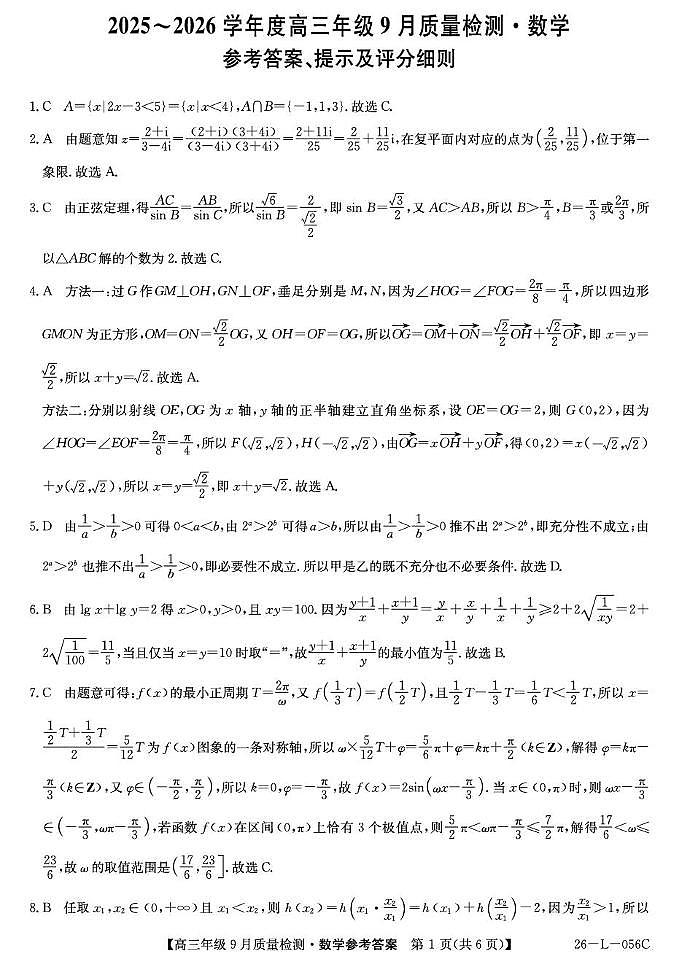 2025～2026 学年度高三年级 9 月质量检测·数学
参考答案、提示及评分细则
1. C A={x|2x−3<5}={x|x<4},A∩B={−1,1,3}. 故选 C.
2. A 由题意知 z=\frac{2+i}{3−4i}=\frac{(2+i)(3+4i)}{(3−4i)(3+4i)}=\frac{2+11i}{25}=\frac{2}{25}+\frac{11}{25}i,在复平面内对应的点为(\frac{2}{25},\frac{11}{25}),位于第一
象限. 故选 A.
3. C 由正弦定理,得\frac{AC}{sin B}=\frac{AB}{sin C},所以\frac{√6}{sin B}=\frac{2}{\frac{√2}{2}},即 sin B=\frac{√3}{2},又 AC>AB,所以 B>\frac{π}{4},B=\frac{π}{3}或\frac{2π}{3},所
以△ABC 解的个数为 2. 故选 C.
4. A 方法一:过 G 作 GM⊥OH,GN⊥OF,垂足分别是 M,N,因为∠HOG=∠FOG=\frac{2π}{8}=\frac{π}{4},所以四边形
GMON 为正方形,OM=ON=\frac{√2}{2}OG,又 OH=OF=OG,所以\overrightarrow{OG}=\overrightarrow{OM}+\overrightarrow{ON}=\frac{√2}{2}\overrightarrow{OH}+\frac{√2}{2}\overrightarrow{OF},即 x=y=
\frac{√2}{2},所以 x+y=√2. 故选 A.
方法二:分别以射线 OE,OG 为 x 轴,y 轴的正半轴建立直角坐标系,设 OE=OG=2,则 G(0,2),因为
∠HOG=∠EOF=\frac{2π}{8}=\frac{π}{4},所以 F(√2,√2),H(−√2,√2),由\overrightarrow{OG}=x\overrightarrow{OH}+y\overrightarrow{OF},得(0,2)=x(−√2,√2)
+y(√2,√2),所以 x=y=\frac{√2}{2},即 x+y=√2. 故选 A.
5. D 由\frac{1}{a}>\frac{1}{b}>0 可得 0<a<b,由 2^a>2^b 可得 a>b,所以由\frac{1}{a}>\frac{1}{b}>0 推不出 2^a>2^b,即充分性不成立;由
2^a>2^b 也推不出\frac{1}{a}>\frac{1}{b}>0,即必要性不成立. 所以甲是乙的既不充分也不必要条件. 故选 D.
6. B 由 lg x+lg y=2 得 x>0,y>0,且 xy=100. 因为\frac{y+1}{x}+\frac{x+1}{y}=\frac{y}{x}+\frac{x}{y}+\frac{1}{x}+\frac{1}{y}≥2+2\sqrt{\frac{1}{xy}}=2+
2\sqrt{\frac{1}{100}}=\frac{11}{5},当且仅当 x=y=10 时取“=”,故\frac{y+1}{x}+\frac{x+1}{y}的最小值为\frac{11}{5}. 故选 B.
7. C 由题意可得:f(x)的最小正周期 T=\frac{2π}{ω},又 f(\frac{1}{3}T)=f(\frac{1}{2}T),且\frac{1}{2}T−\frac{1}{3}T=\frac{1}{6}T<\frac{1}{2}T,所以 x=
\frac{\frac{1}{2}T+\frac{1}{3}T}{2}=\frac{5}{12}T 为 f(x)图象的一条对称轴,所以 ω×\frac{5}{12}T+φ=\frac{5}{6}π+φ=kπ+\frac{π}{2}(k∈Z),解得 φ=kπ−
\frac{π}{3}(k∈Z),又 φ∈(−\frac{π}{2},\frac{π}{2}),所以 k=0,φ=−\frac{π}{3},故 f(x)=2sin(ωx−\frac{π}{3}). 当 x∈(0,π)时,则 ωx−\frac{π}{3}
∈(−\frac{π}{3},ωπ−\frac{π}{3}),若函数 f(x)在区间(0,π)上恰有 3 个极值点,则\frac{5}{2}π<ωπ−\frac{π}{3}≤\frac{7}{2}π,解得\frac{17}{6}<ω≤
\frac{23}{6},故 ω 的取值范围是(\frac{17}{6},\frac{23}{6}]. 故选 C.
8. B 任取 x₁,x₂∈(0,+∞)且 x₁<x₂,则 h(x₂)=h(x₁·\frac{x₂}{x₁})=h(x₁)+h(\frac{x₂}{x₁})−2,因为\frac{x₂}{x₁}>1,所以
【高三年级 9 月质量检测·数学参考答案 第 1 页(共 6 页)】 26−L−056C